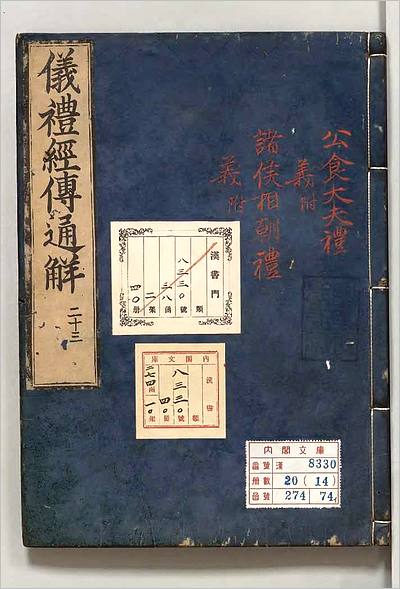 儀禮經傳通解
二十三
公食大夫禮
義附
諸侯相朝禮
義附
漢書門
類
八三三〇號
二八函
二架
四〇册
內閣文庫
漢書
八三三〇
類號
四〇
二七四函
一〇架
內閣文庫
番號 漢 8330
册數 20(14)
函號 274 74